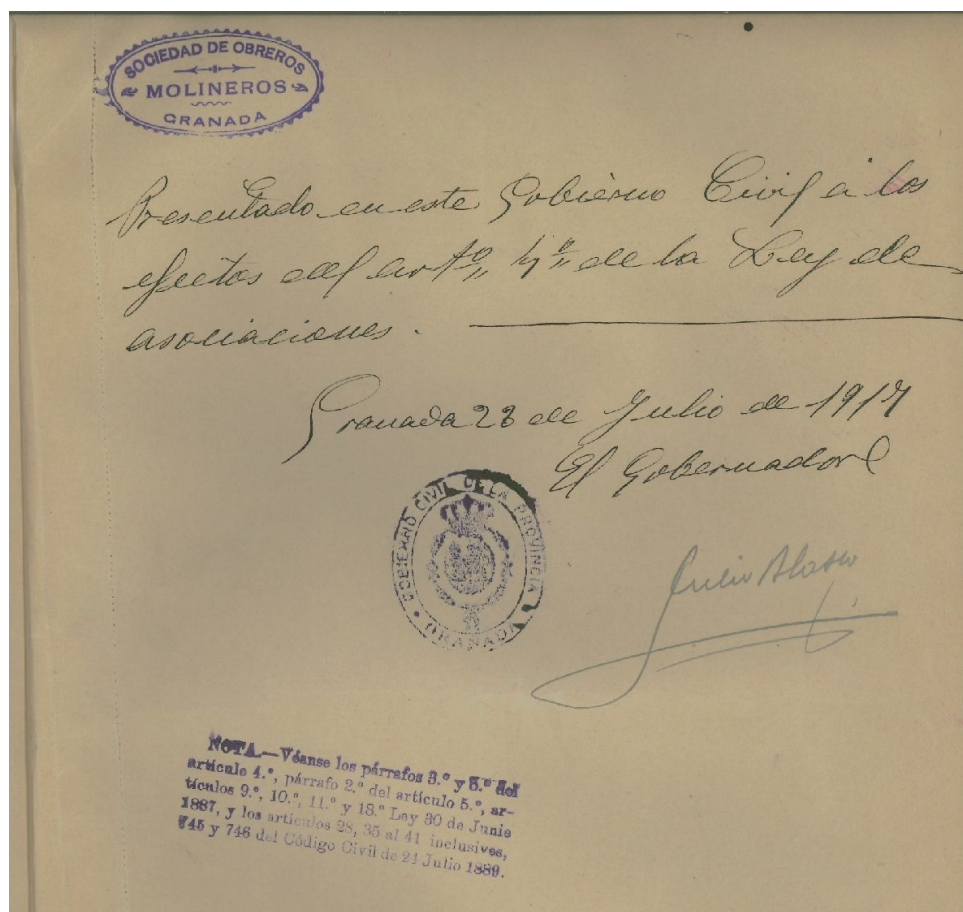 SOCIEDAD DE OBREROS
MOLINEROS
GRANADA
Presentado en este Gobierno Civil a los
efectos del artº 4º de la Ley de
asociaciones.
Granada 23 de Julio de 1917
El Gobernador
GOBIERNO CIVIL DE LA PROVINCIA
GRANADA
Julio Blasco
NOTA.—Véanse los párrafos 3.º y 5.º del
artículo 4.º, párrafo 2.º del artículo 5.º, ar-
tículos 9.º, 10.º, 11.º y 18.º Ley 30 de Junio
1887, y los artículos 28, 35 al 41 inclusives,
745 y 746 del Código Civil de 24 Julio 1889.